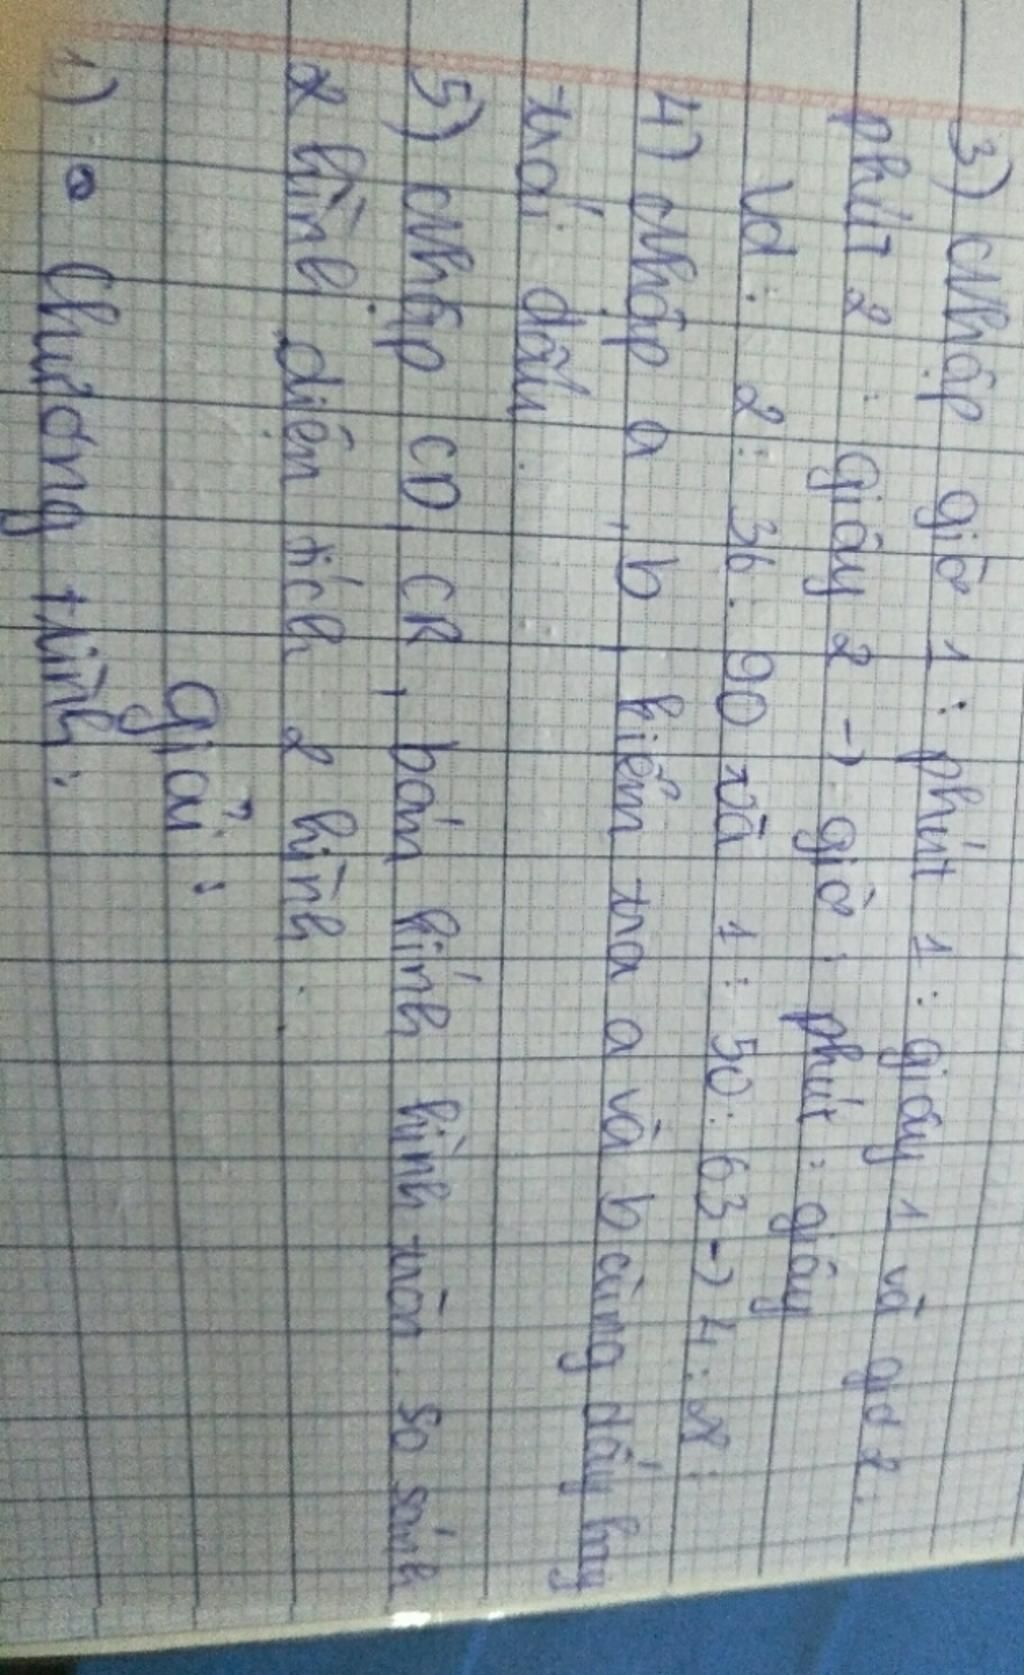 3) Nhập giờ 1 : phút 1 : giây 1 và giờ 2 :
phút 2 : giây 2 -> giờ : phút : giây
Vd : 2 : 36 : 90 và 1 : 50 : 63 -> 4 : 28 :
4) Nhập a, b, kiểm tra a và b cùng dấu hay
trái dấu.
5) Nhập CD, CR, bán kính hình tròn. So sánh
2 hình diện tích 2 hình.
Giải :
1) Chương trình :